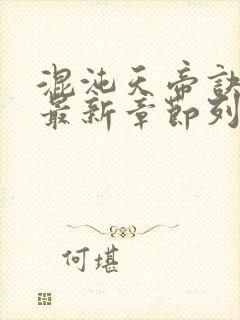 混沌天帝訣
最新章節列
何堪